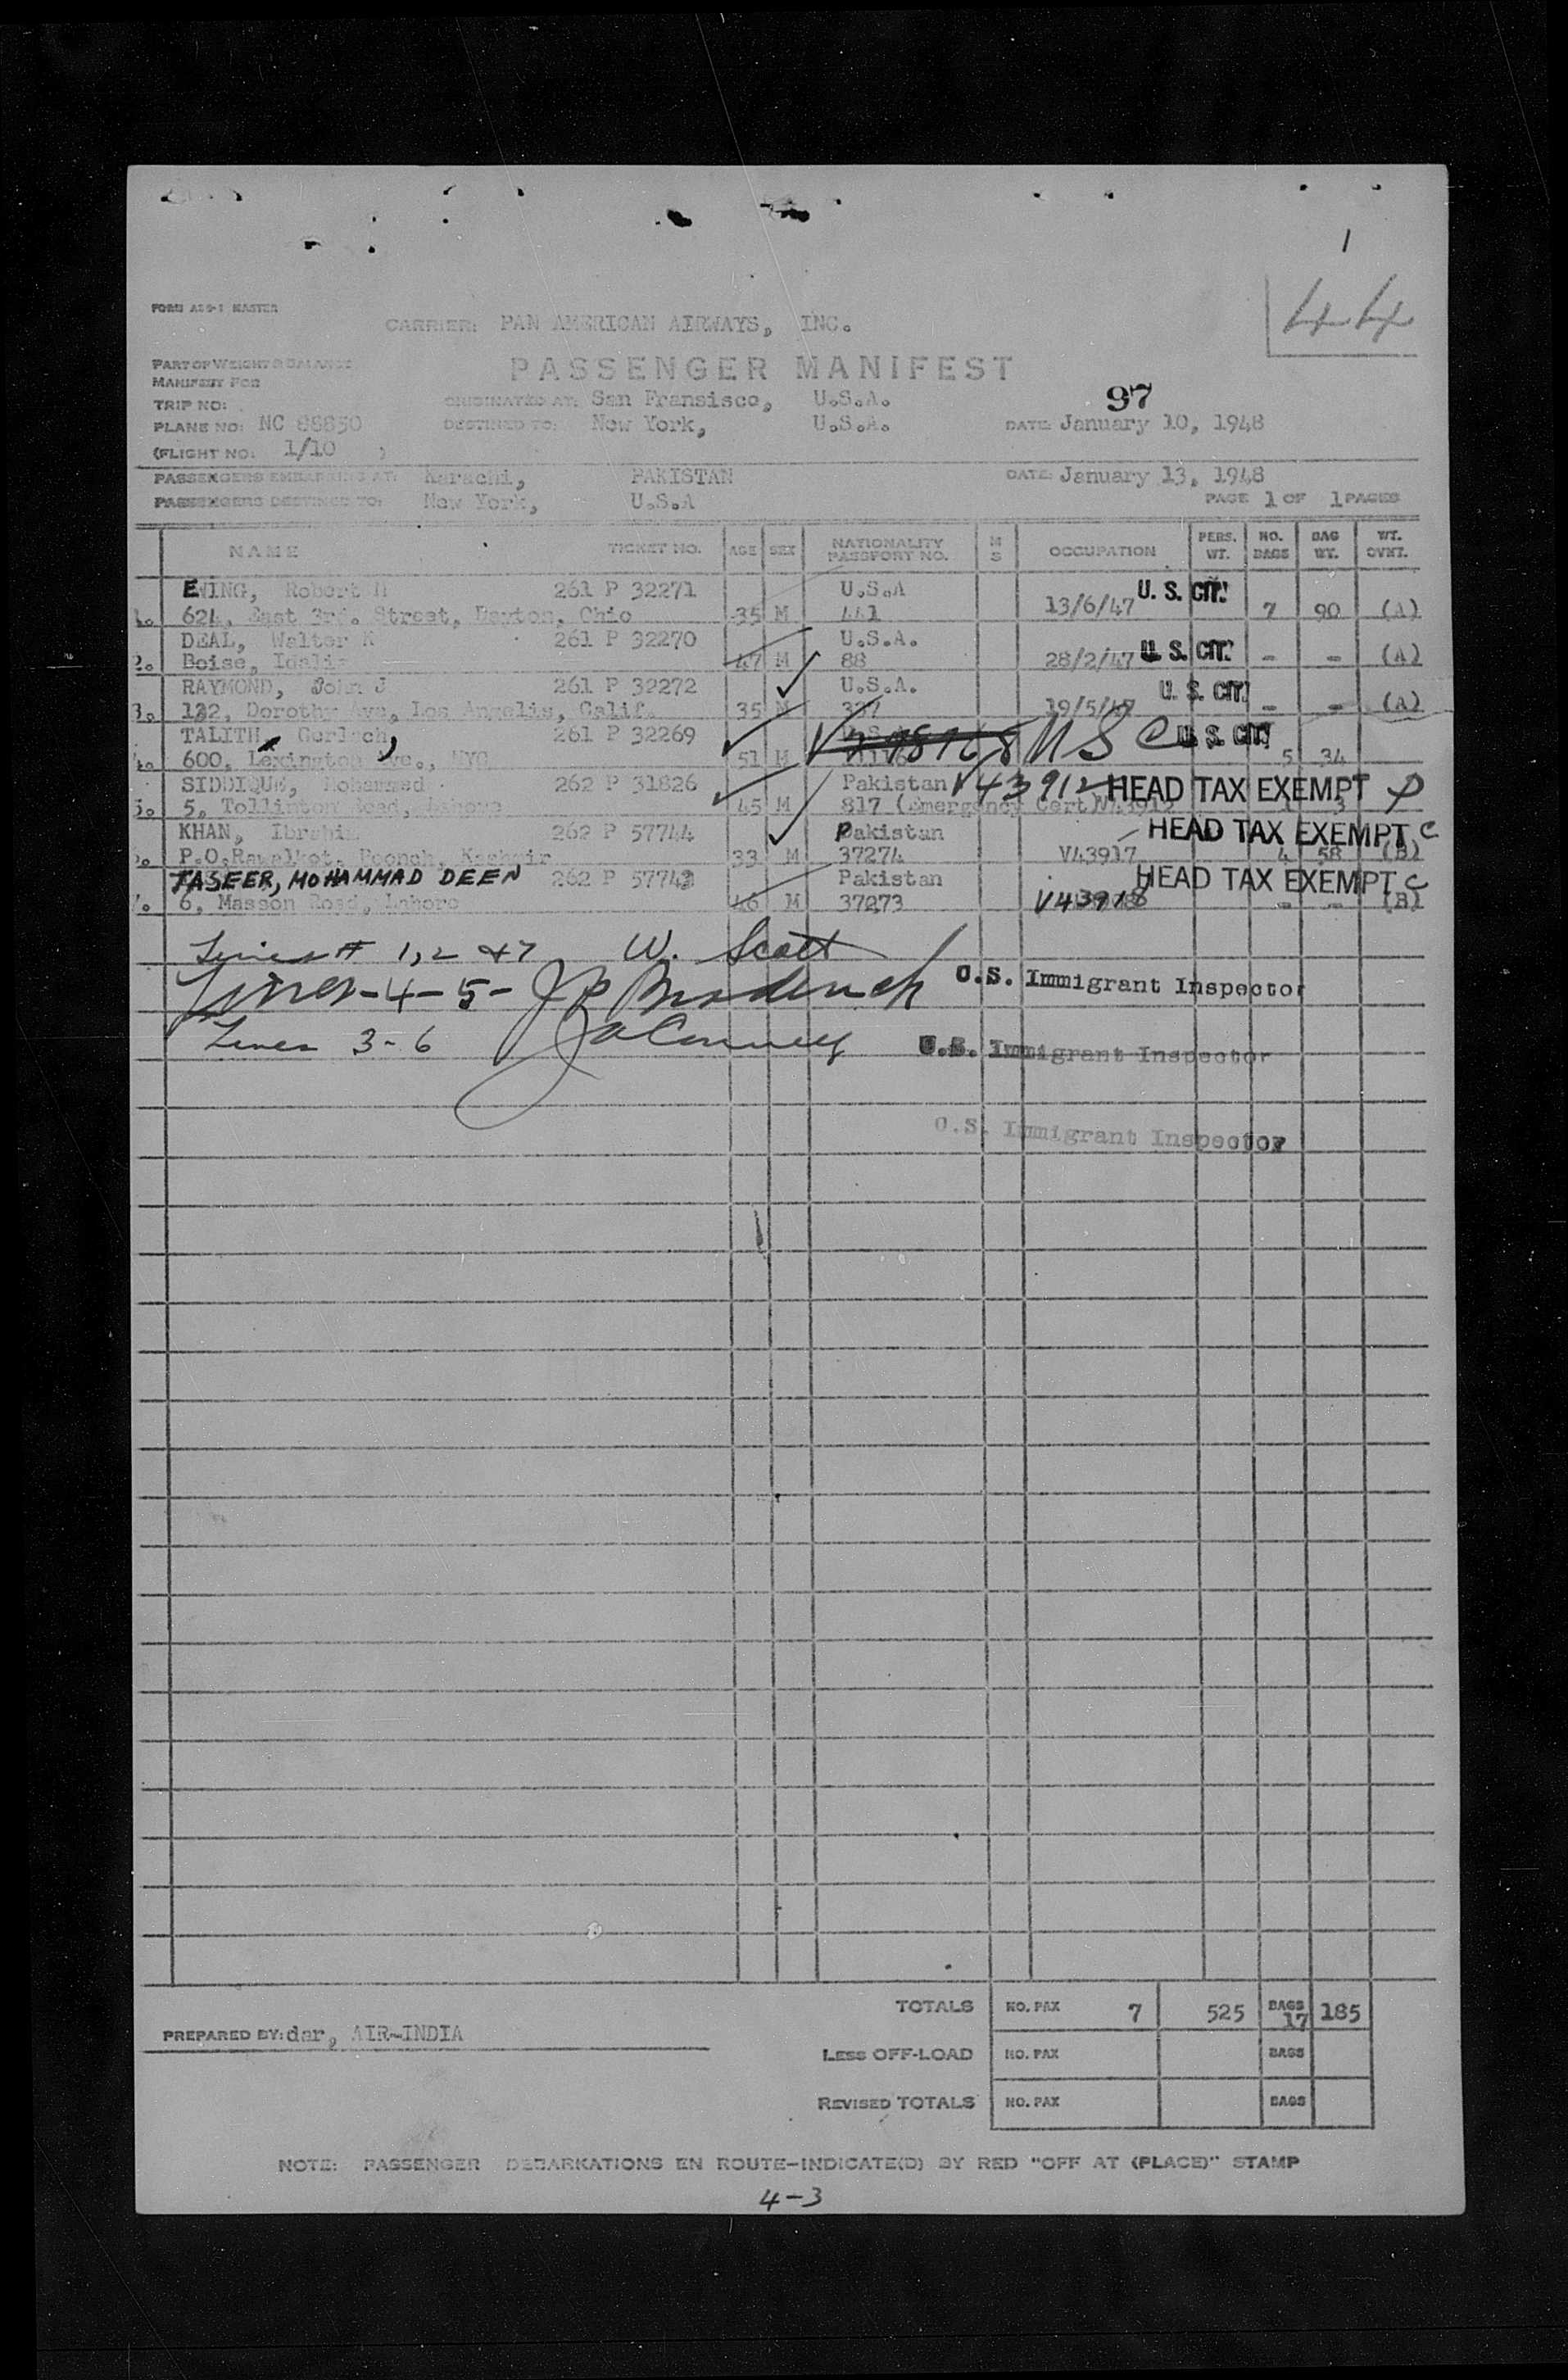 1
44
FORM
MASTER
CARRIER: PAN AMERICAN AIRWAYS, INC.
PART OF WEIGHT & BALANCE
MANIFEST FOR
PASSENGER MANIFEST
97
TRIP NO:
ORIGINATED AT: San Fransisco, U.S.A.
PLANE NO: NC 88850
DESTINED TO: New York, U.S.A.
DATE: January 10, 1948
(FLIGHT NO: 1/10 )
PASSENGERS EMBARKING AT: Karachi, PAKISTAN DATE: January 13, 1948
PASSENGERS DESTINED TO: New York, U.S.A
PAGE 1 OF 1 PAGES
NAME TICKET NO. AGE SEX NATIONALITY PASSPORT NO. M S OCCUPATION PERS. WT. NO. BAGS BAG WT. WT. OVNT.
EWING, Robert H 261 P 32271 U.S.A U. S. CIT.
624, East 3rd. Street, Dayton, Ohio 35 M 441 13/6/47 7 90 (A)
DEAL, Walter K 261 P 32270 U.S.A.
2. Boise, 47 M 88 28/2/47 U. S. CIT. - - (A)
RAYMOND, John J 261 P 32272 U.S.A. U. S. CIT
3. 122, Dorothy Ave, Los Angelis, Calif. 35 M 19/5/47 - - (A)
TALITH, Gerlach, 261 P 32269 USC U. S. CIT
600, Lexington Ave., NYC 51 M 5 34
SIDDIQUE, Mohammed 262 P 31826 Pakistan V43912 HEAD TAX EXEMPT P
5. 5, Tollinton Road, Lahore 45 M 817 (Emergency Cert) V43912 1 3
KHAN, Ibrahim 262 P 57744 Pakistan HEAD TAX EXEMPT C
P.O.Rawalkot, Poonch, Kashmir 33 M 37274 V43917 4 58 (B)
TASEER, MOHAMMAD DEEN 262 P 57743 Pakistan HEAD TAX EXEMPT C
6, Masson Road, Lahore 46 M 37273 V43918 - - (B)
Lines # 1, 2 & 7 W. Scott
Lines - 4 - 5 -
U.S. Immigrant Inspector
Lines 3 - 6
U.S. Immigrant Inspector
U.S. Immigrant Inspector
TOTALS NO. PAX 7 525 BAGS 17 185
PREPARED BY: dar, AIR-INDIA
LESS OFF-LOAD NO. PAX BAGS
REVISED TOTALS NO. PAX BAGS
NOTE: PASSENGER DEBARKATIONS EN ROUTE-INDICATE(D) BY RED "OFF AT (PLACE)" STAMP
4-3